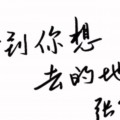 到你想
去的地
张